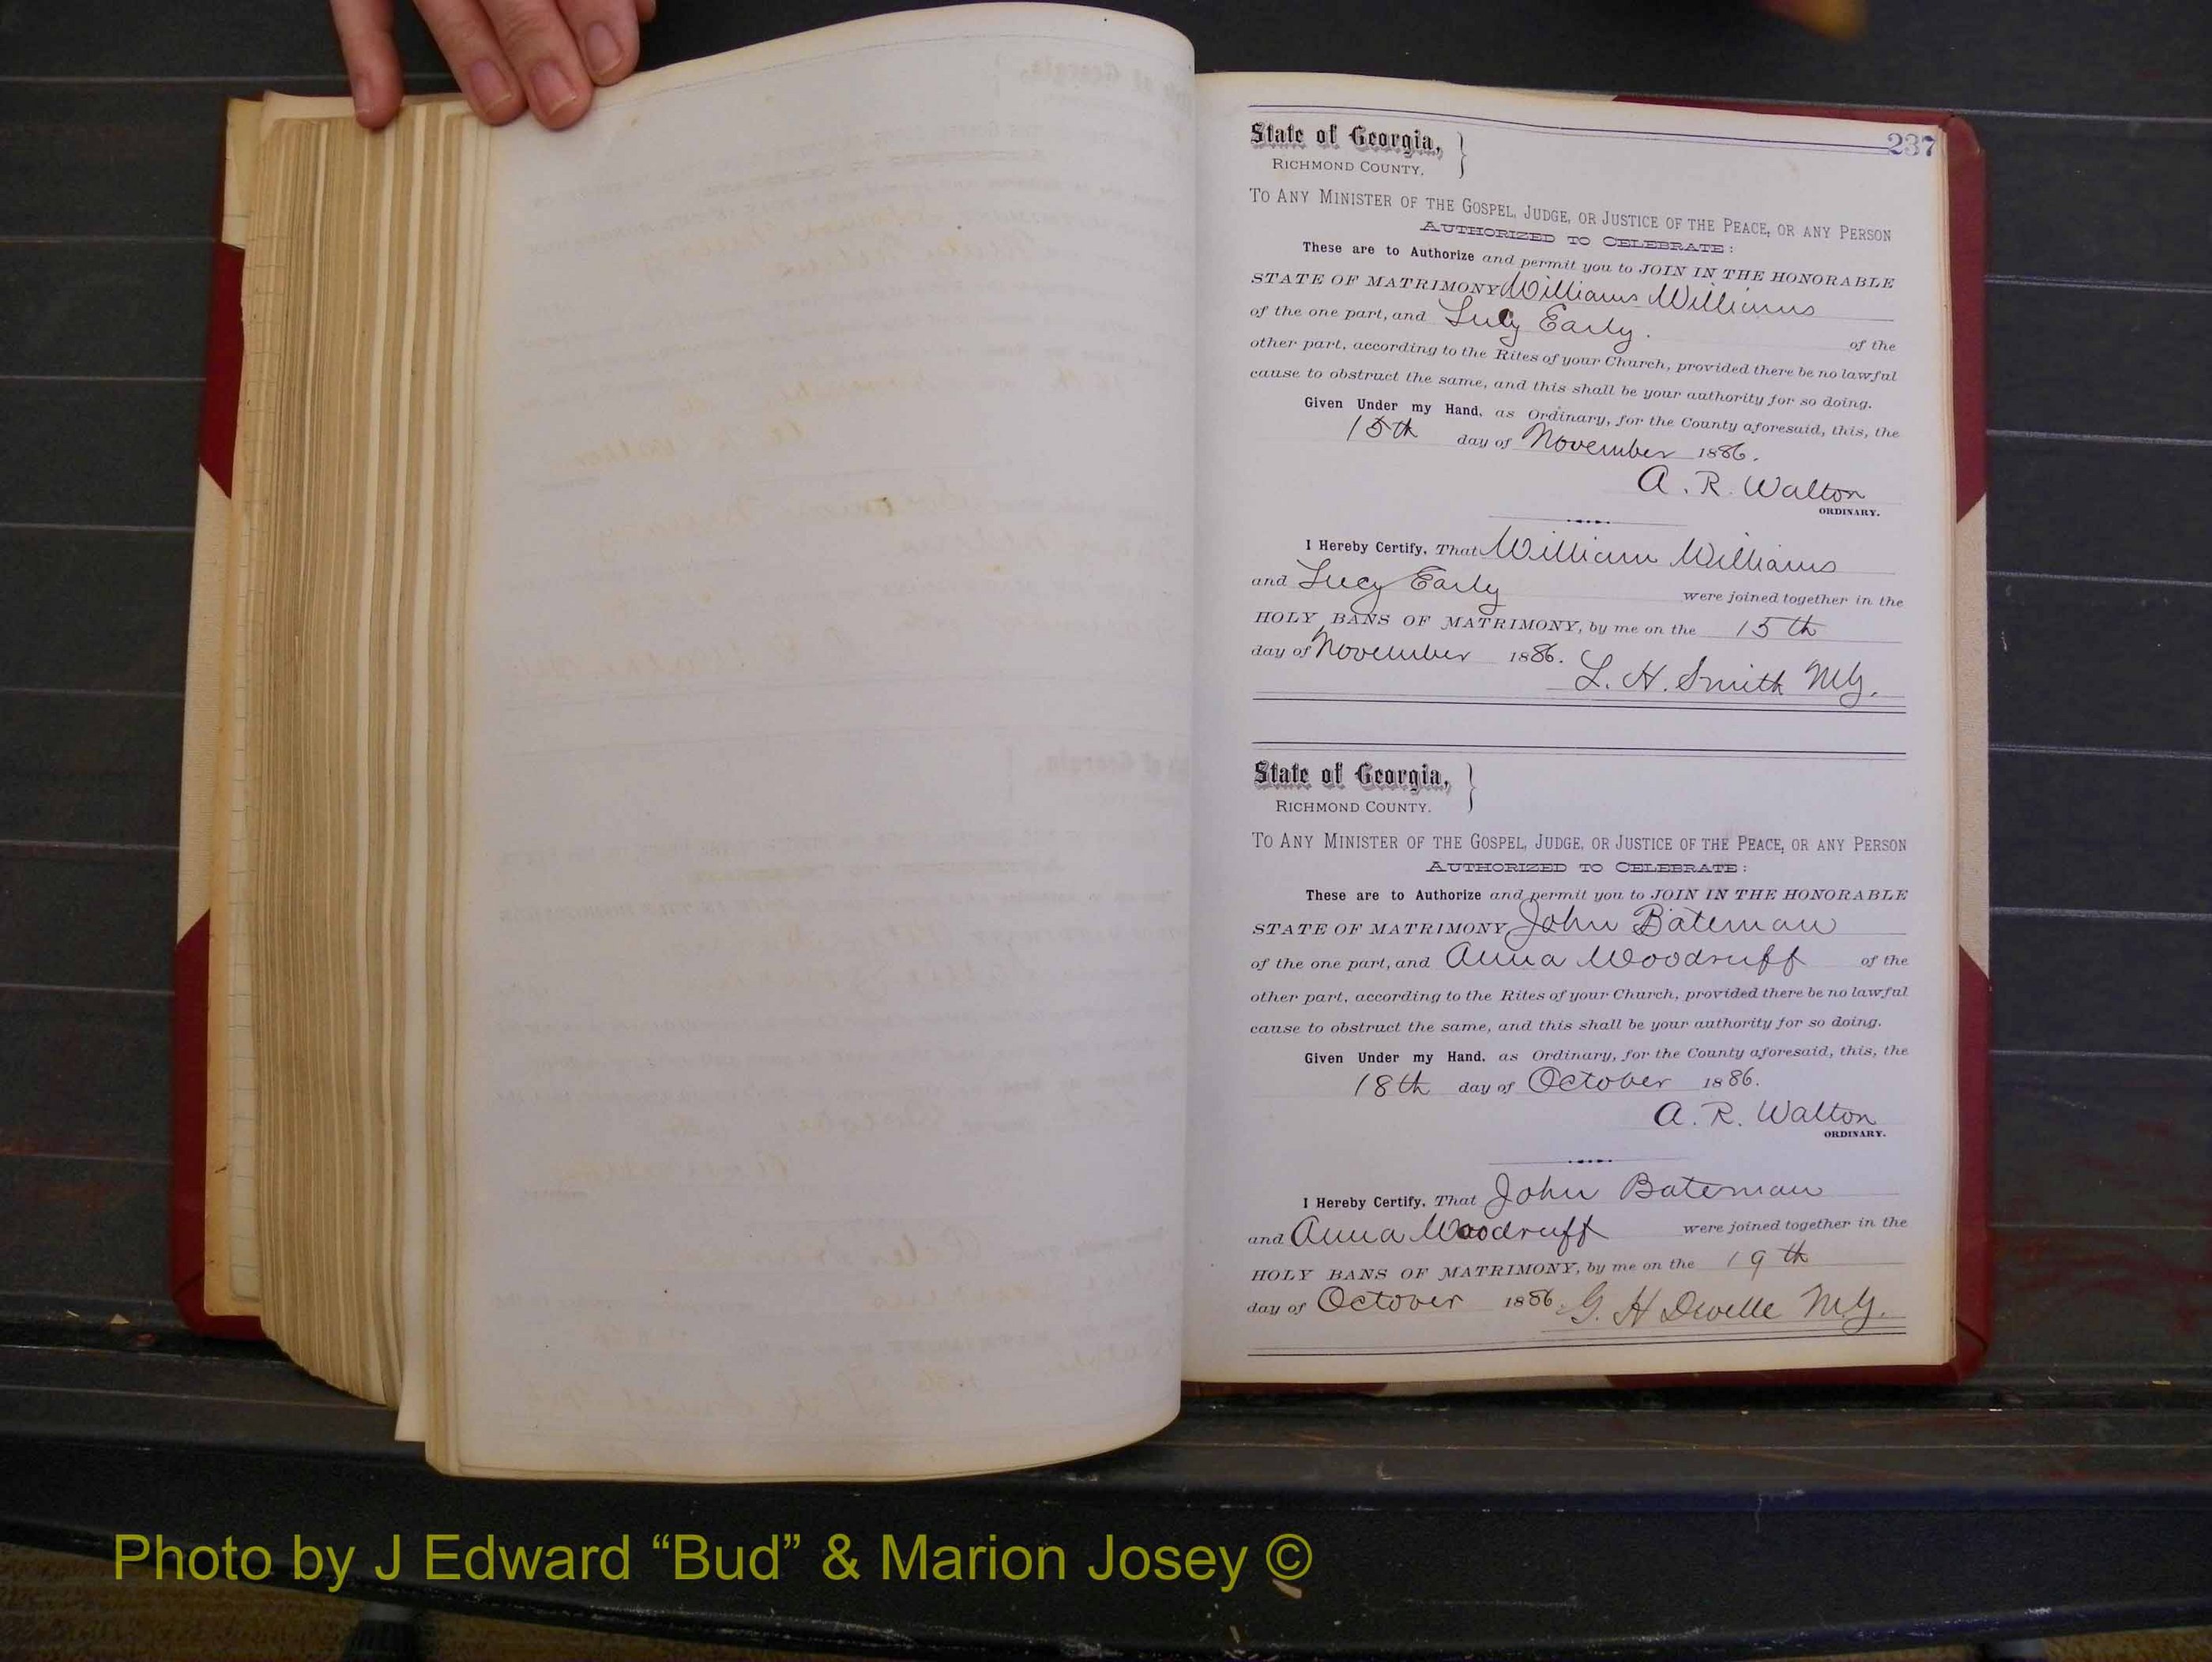 237
State of Georgia, }
RICHMOND COUNTY.
TO ANY MINISTER OF THE GOSPEL, JUDGE, OR JUSTICE OF THE PEACE, OR ANY PERSON
AUTHORIZED TO CELEBRATE:
These are to Authorize and permit you to JOIN IN THE HONORABLE
STATE OF MATRIMONY Williams Williams
of the one part, and Lucy Early. of the
other part, according to the Rites of your Church, provided there be no lawful
cause to obstruct the same, and this shall be your authority for so doing.
Given Under my Hand, as Ordinary, for the County aforesaid, this, the
15th day of November 1886.
A. R. Walton
ORDINARY.
I Hereby Certify, That William Williams
and Lucy Early were joined together in the
HOLY BANS OF MATRIMONY, by me on the 15th
day of November 1886.
L. H. Smith M.G.
State of Georgia, }
RICHMOND COUNTY.
TO ANY MINISTER OF THE GOSPEL, JUDGE, OR JUSTICE OF THE PEACE, OR ANY PERSON
AUTHORIZED TO CELEBRATE:
These are to Authorize and permit you to JOIN IN THE HONORABLE
STATE OF MATRIMONY John Bateman
of the one part, and Anna Woodruff of the
other part, according to the Rites of your Church, provided there be no lawful
cause to obstruct the same, and this shall be your authority for so doing.
Given Under my Hand, as Ordinary, for the County aforesaid, this, the
18th day of October 1886.
A. R. Walton
ORDINARY.
I Hereby Certify, That John Bateman
and Anna Woodruff were joined together in the
HOLY BANS OF MATRIMONY, by me on the 19th
day of October 1886. G. H Dwelle M.G.
Photo by J Edward “Bud” & Marion Josey ©